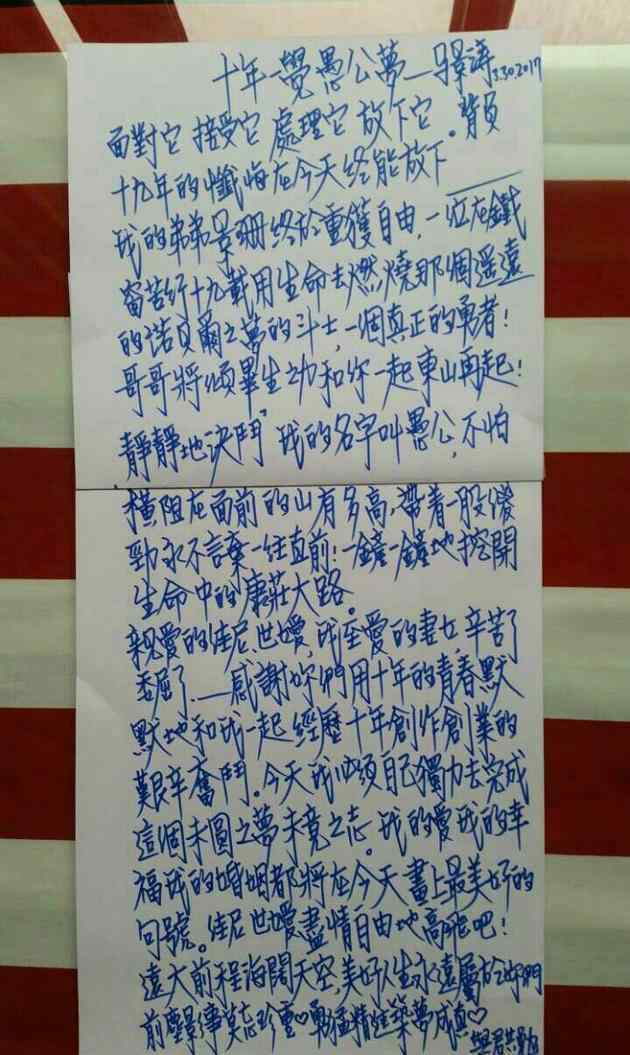 十年一覺愚公夢—馬景濤 3.30.2017
面對它 接受它 處理它 放下它。背負
十九年的懺悔在今天終能放下——
我的弟弟景珊終於重獲自由，一位在鐵
窗苦行十九載用生命去燃燒那個遥遠
的诺貝爾之夢的斗士，一個真正的勇者！
哥哥將傾畢生之力和你一起東山再起！
靜靜地决鬥，我的名字叫愚公，不怕
橫阻在面前的山有多高，帶着一股傻
勁永不言棄一往直前！一鏟一鏟地挖開
生命中的康莊大路。
親愛的佳尼，世嫒，我至愛的妻女，辛苦了
委屈了.——感謝妳們用十年的青春默
默地和我一起經歷十年創作創業的
艱辛奮鬥。今天我必須自己獨力去完成
這個未圓之夢未竟之志。我的愛我的幸
福我的婚姻都將在今天畫上最美好的
句號。佳尼世嫒盡情自由地高飛吧！
遠大前程海闊天空，美好人生永遠屬於妳們
前塵影事莫忘珍重♡勇猛精進築夢成真♡
與君共勉